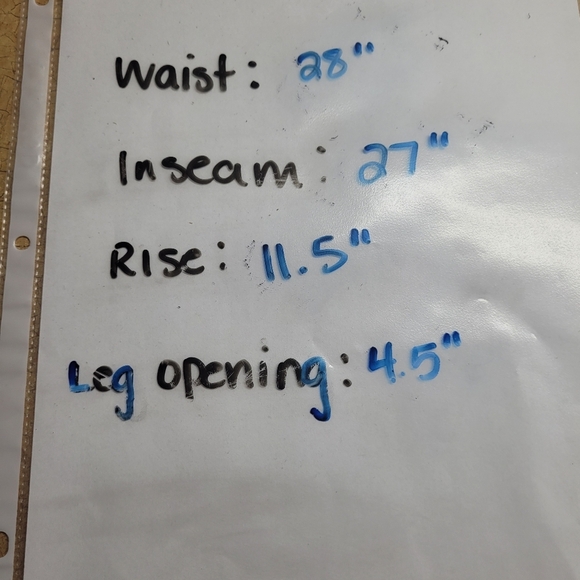 Waist: 28"
Inseam: 27"
Rise: 11.5"
Leg opening: 4.5"